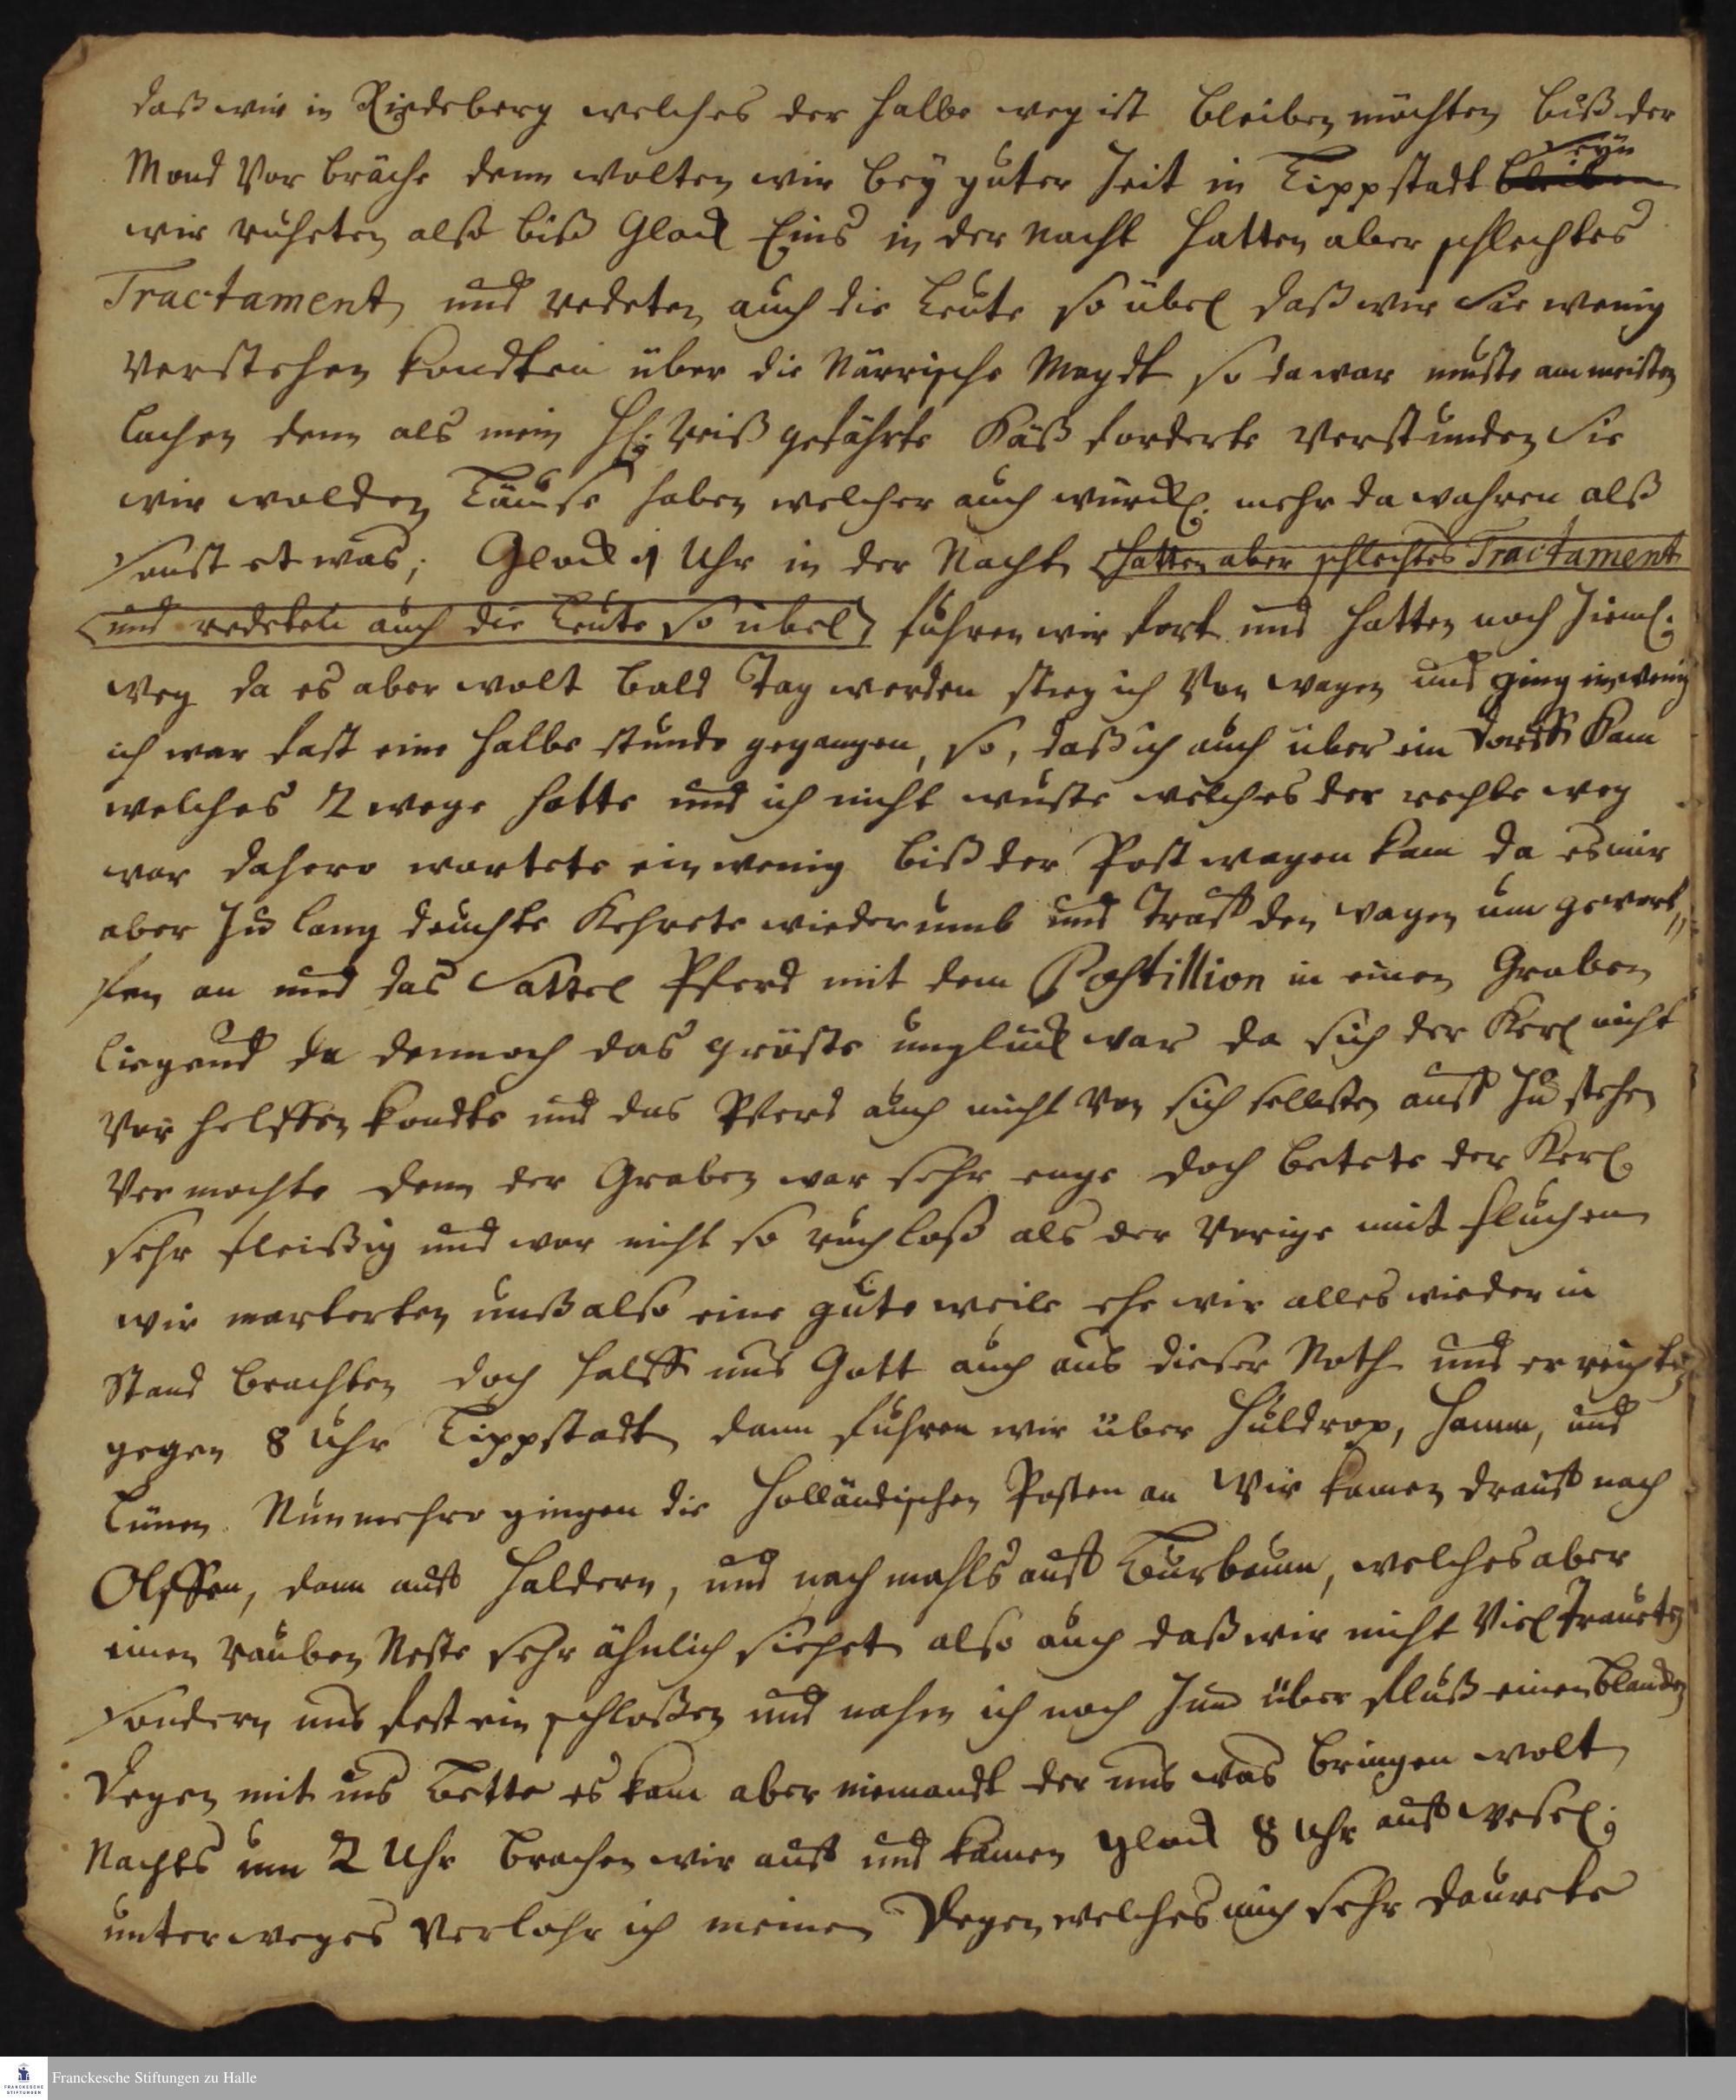 daß wir in Riedeberg welches der halbe weg ist bleiben möchten biß der
Mond vor bräche denn wolten wir bey guter Zeit in Lippstadt seyn
wir ruheten also biß Glock Eins in der nacht hatten aber schlechtes
Tractament und redeten auch die Leute so übel daß wir Sie wenig
verstehen kondten über die Närrische Magdt so da war muste am meisten
lachen denn als mein H. Reiß gefährte Käß forderte verstunden Sie
wir wolden Läuse haben welcher auch würckl. mehr da wahren alß
sonst et was; Glock 1 Uhr in der Nacht hatten aber schlechtes Tractament
und redeten auch die Leute so übel fuhren wir fort und hatten noch Zieml.
weg da es aber wolt bald Tag werden stieg ich von wagen und ging ein wenig
ich war fast eine halbe stunde gegangen, so, daß ich auch über ein Dorff kam
welches 2 wege hatte und ich nicht wuste welches der rechte weg
war dahero wartete ein wenig biß der Post wagen kam da es mir
aber Zu lang deuchte Kehrete wiederumb und Traff den wagen um geworf„
fen an und das Sattel Pferd mit dem Postillion in einen Graben
liegend da dennoch das gröste unglück war da sich der Kerl nicht
vor helffen kondte und das Pferd auch nicht von sich selbsten auff Zu stehen
vermochte denn der Graben war sehr enge doch betete der Kerl
sehr fleißig und war nicht so ruchloß als der Vorige mit fluchen
wir marterten unß also eine gute weile ehe wir alles wieder in
Stand brachten doch halff uns Gott auch aus dieser Noth und erreichten
gegen 8 Uhr Lippstadt dann fuhren wir über Huldrop, Hamm, und
Lünen. Nunmehro gingen die Holländischen Posten an Wir kamen drauff nach
Olffen, dann auff Haldern, und nachmahls auff Burbaum, welches aber
einen Rauben Neste sehr ähnlich siehet also auch daß wir nicht Viel traueten
sondern uns fest ein schloßen und nahm ich noch Zum überfluß einen blancken
Degen mit ins Bette es kam aber niemandt der uns was bringen wolt
Nachts um 2 Uhr brachen wir auff und kamen Glock 8 Uhr auff Wesel.
unterweges Verlohr ich meinen Degen welches mich sehr daurete